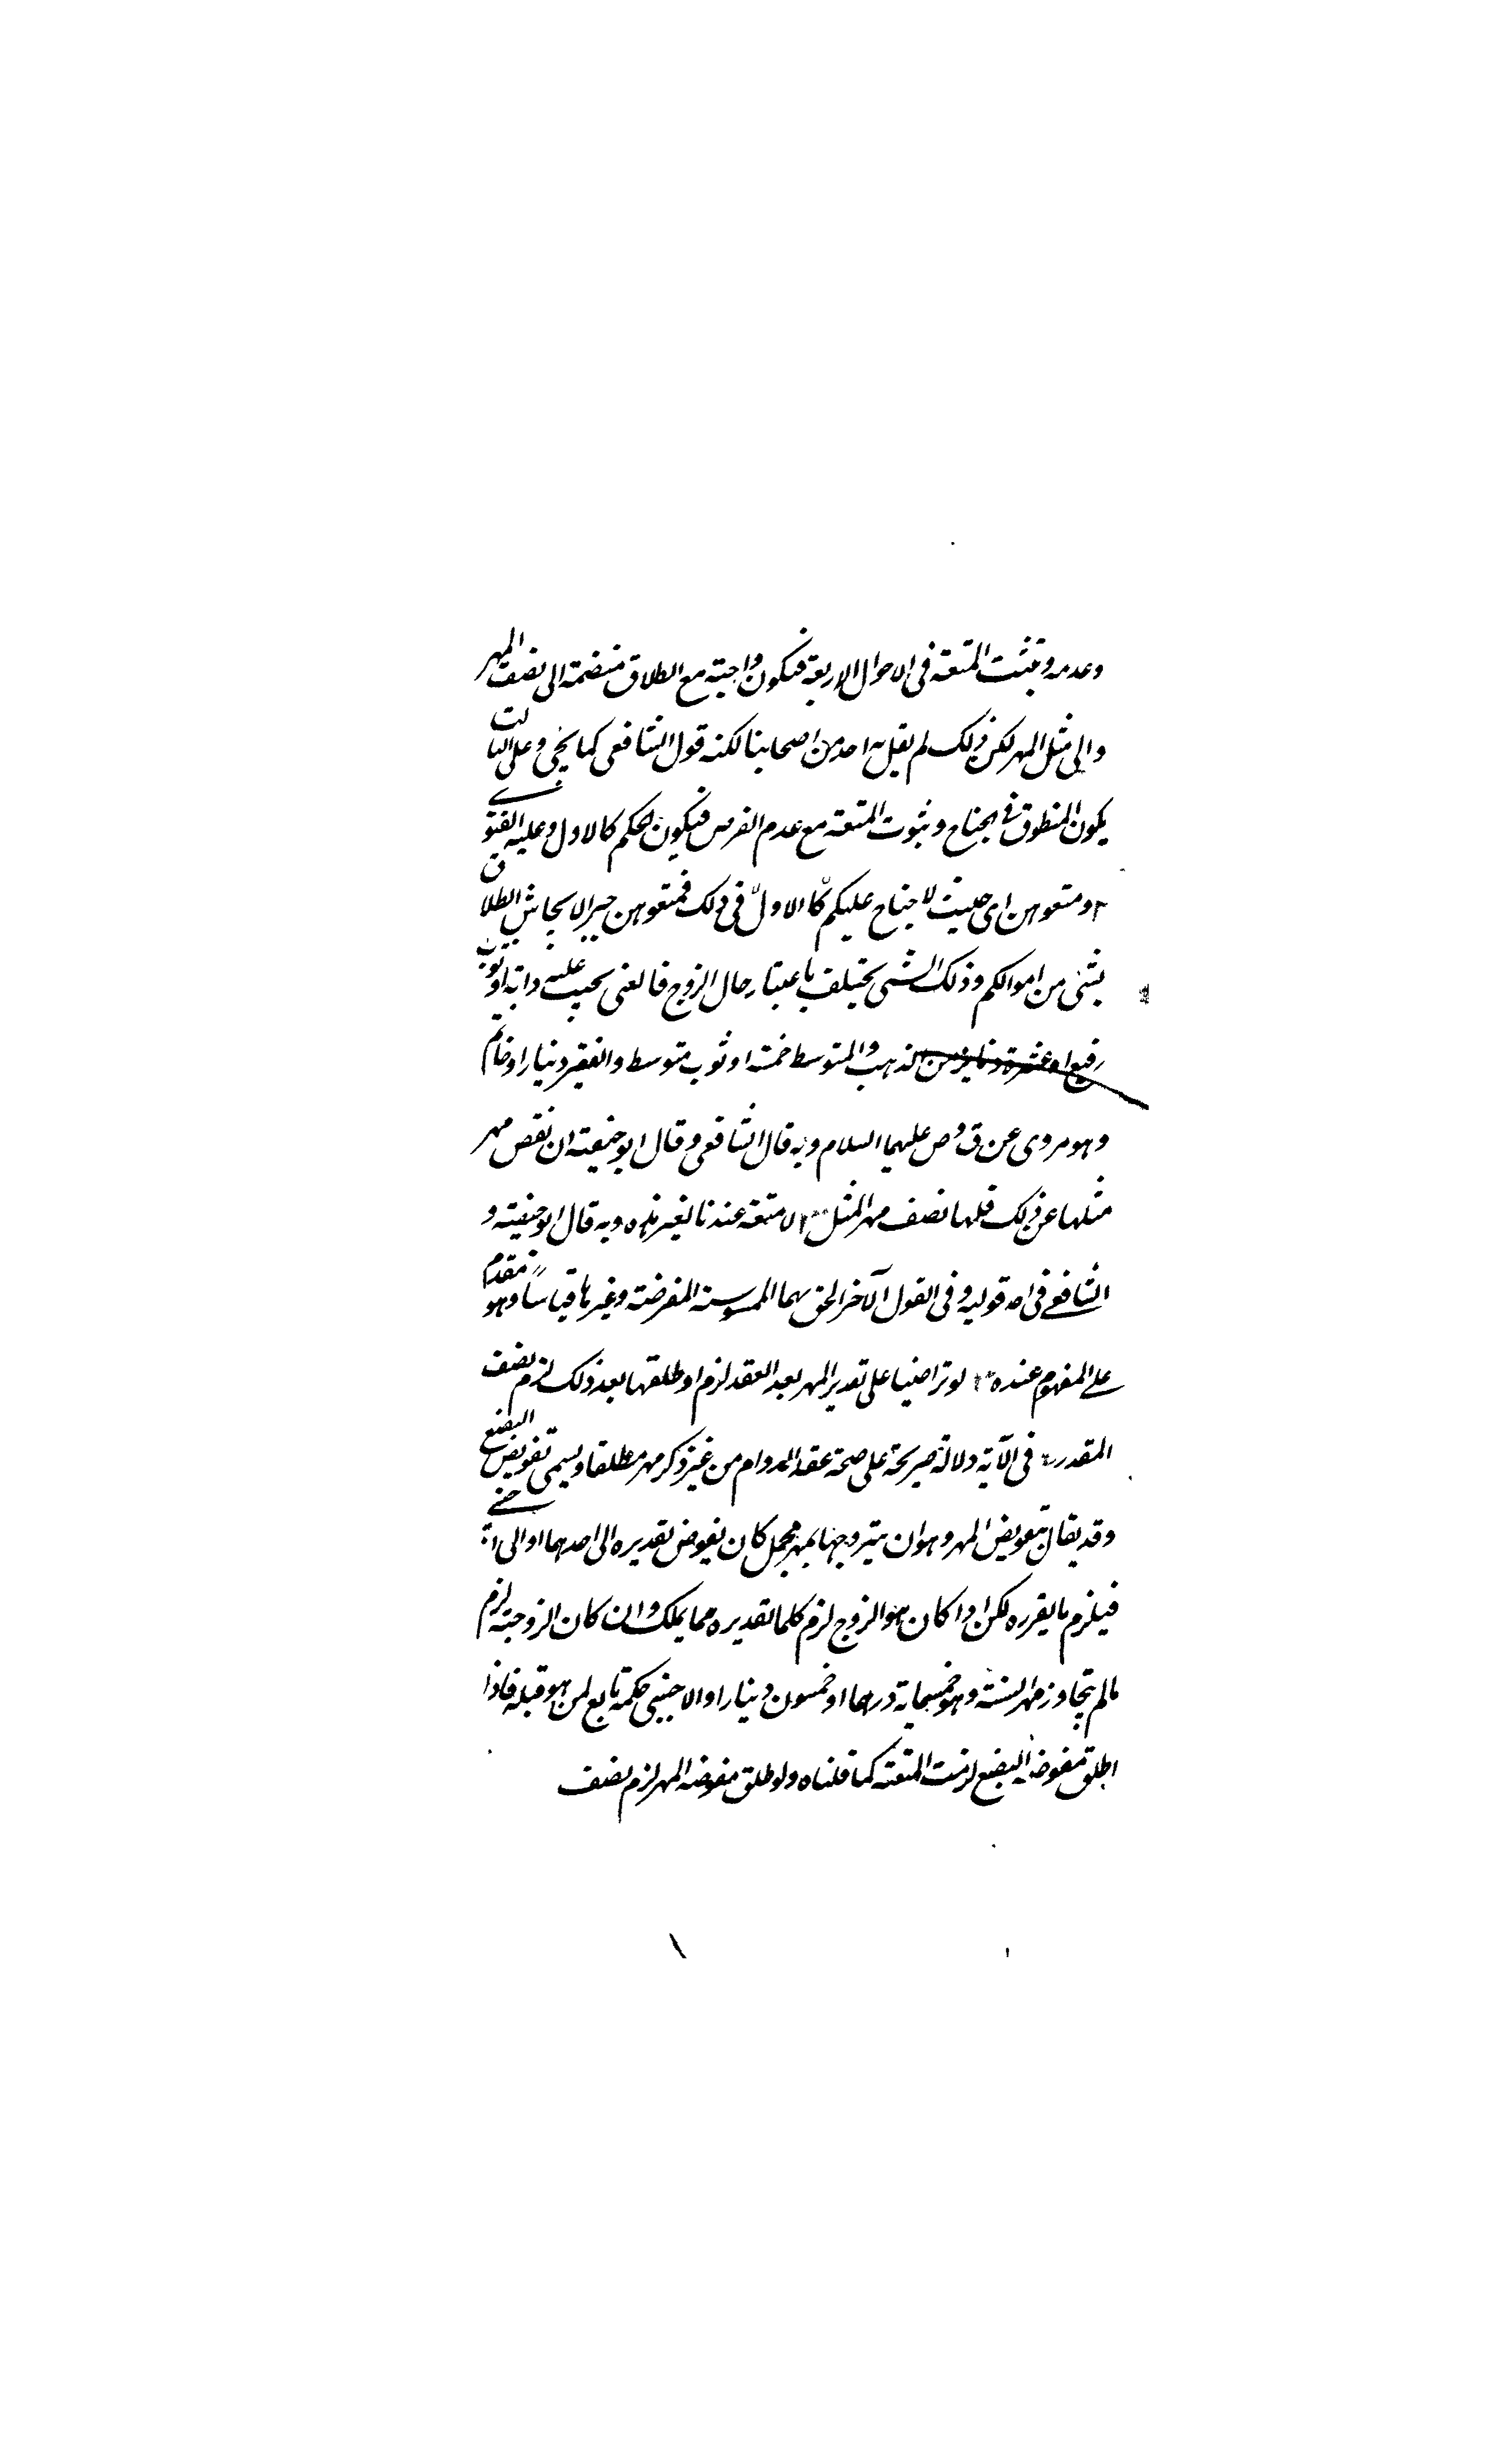 وعدمه وتثبت المتعة فى الاحوال الاربعة فتكون واجبة مع الطلاق منضمة الى نصف المهر
والى مثل المهر لكن ذلك لم يقل به احد من اصحابنا لكنه قول الشافعى كما يجئ وعلى الثالث
يكون المنطوق نفى الجناح وثبوت المتعة مع عدم الفرض فيكون الحكم كالاول وعليه الفتوى
٢ ومتعوهن اى حيث لا جناح عليكم فى ذلك فمتعوهن جبرا لايحاش الطلاق
بشئ من اموالكم وذلك الشئ يختلف باعتبار حال الزوج فالغنى يجب عليه دابة او ثوب
رفيع او عشرة دنانير من الذهب والمتوسط خمسة او ثوب متوسط والفقير دينار او خاتم
وهو مروى عن ق وص عليهما السلام وبه قال الشافعى وقال ابو حنيفة ان نقص مهر
مثلها عن ذلك فلها نصف مهر المثل ٣ لا متعة عندنا لغير هذه وبه قال ابو حنيفة و
الشافعى فى احد قوليه وفى القول الآخر الحق بها الممسوسة المفرضة وغيرها قياسا وهو مقدم
على المفهوم عنده ٤ لو تراضيا على تقدير المهر بعد العقد لزم او طلقها بعد ذلك لزم نصف
المقدر فى الآية دلالة صريحة على صحة عقد الدوام من غير ذكر مهر مطلقا ويسمى تفويض البضع
وقد يقال تفويض المهر وهو ان يتزوجها بمهر مجمل كان يفوض تقديره الى احدهما او الى اجنبى
فيلزم ما يقرره لكن اذا كان هو الزوج لزم كلما تقديره مما يملك وان كان الزوجة لزم
مالم يتجاوز مهر السنة وهو خمسماية درهما او خمسون دينارا والاجنبى حكمه تابع لمن هو قبله فاذا
اطلق مفوضة البضع لزمت المتعة كما قلناه ولو طلق مفوضة المهر لزم نصف